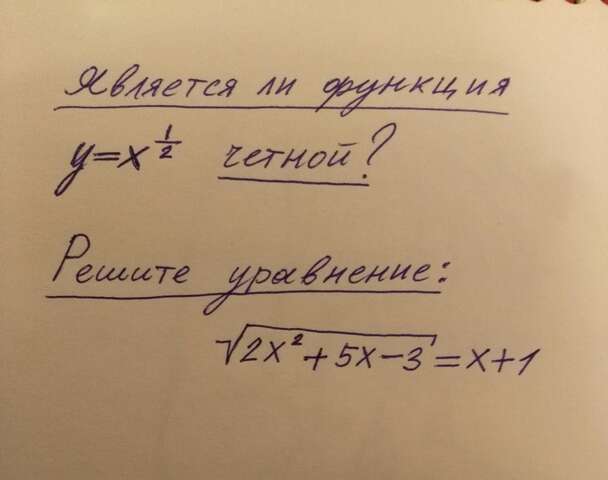 Является ли функция
y=x^{1/2} четной?
Решите уравнение:
√(2x²+5x-3)=x+1